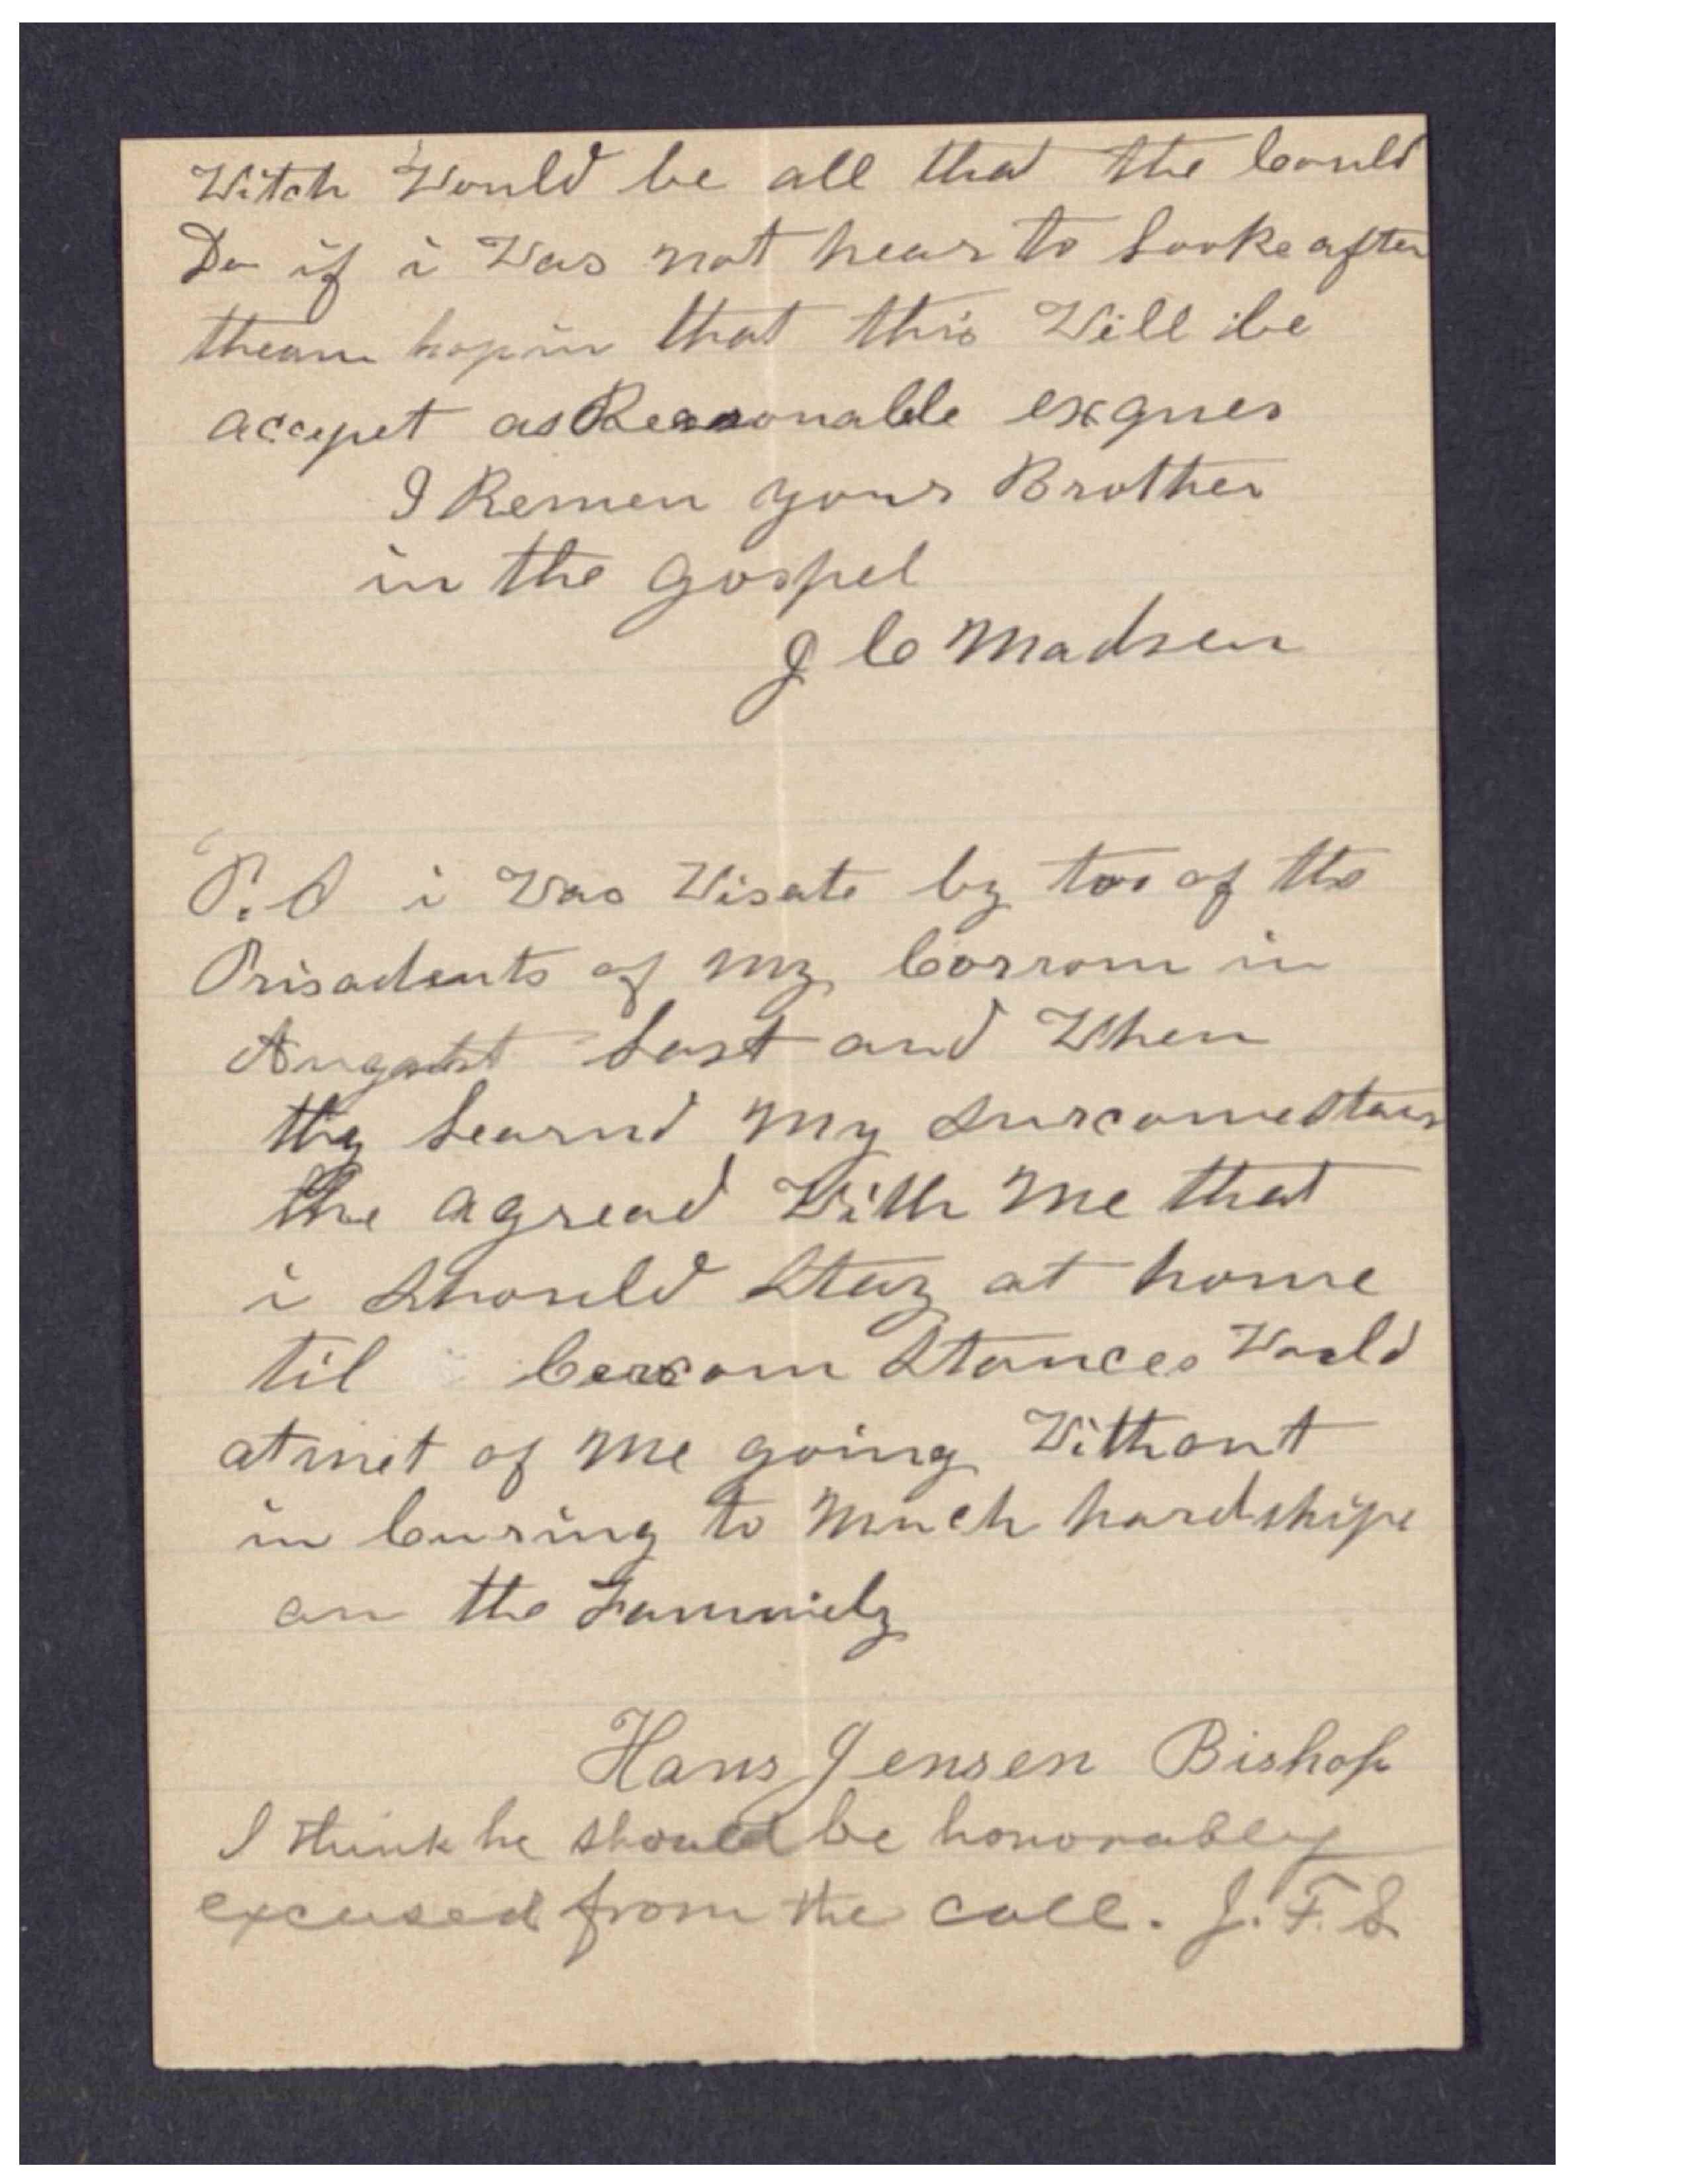 Witch Would be all that the Could
Do if i Was not hear to Looke after
theam hopin that this Will be
accepet as Reasonable exques
I Remen your Brother
in the gospel
J C Madsen
P.S i Was Visate by too of the
Prisadents of my Corrom in
August Last and When
thy Learnd my Surcomestan
the agread With me that
i Should Stay at home
til Cercom Stances Would
atmet of me going Without
in Curing to much hardshipe
on the Fammiely
Hans Jensen Bishop
I think he should be honorably
excused from the call. J. F. S